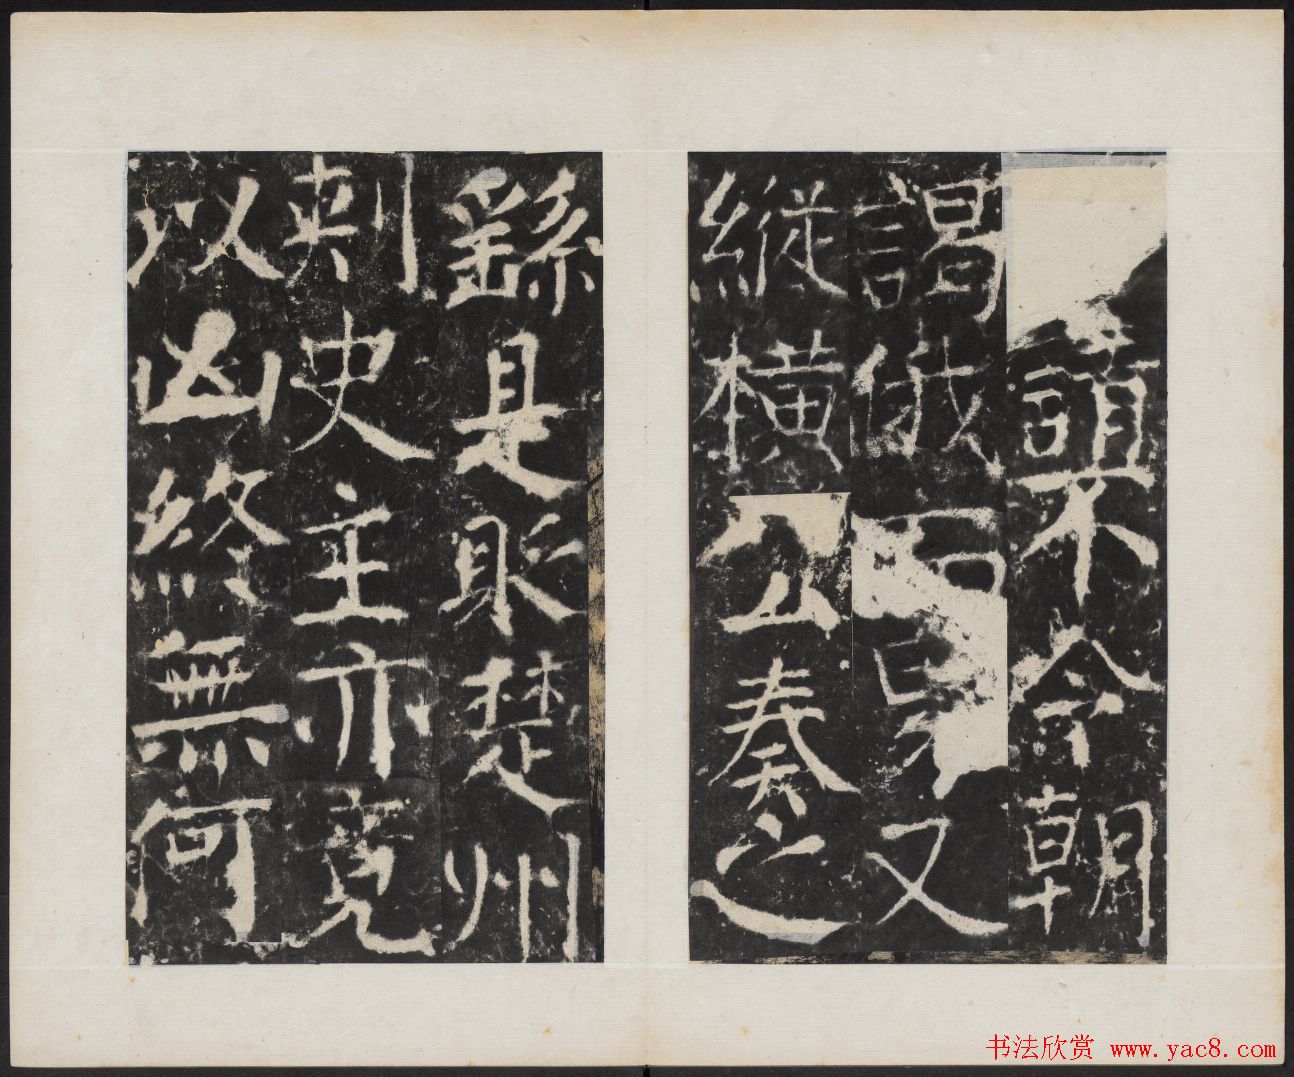 誼不令朝
謁俄而又
縱橫公奏之
繇是貶楚州
刺史主亦竟
以凶終無何
书法欣赏 www.yac8.com